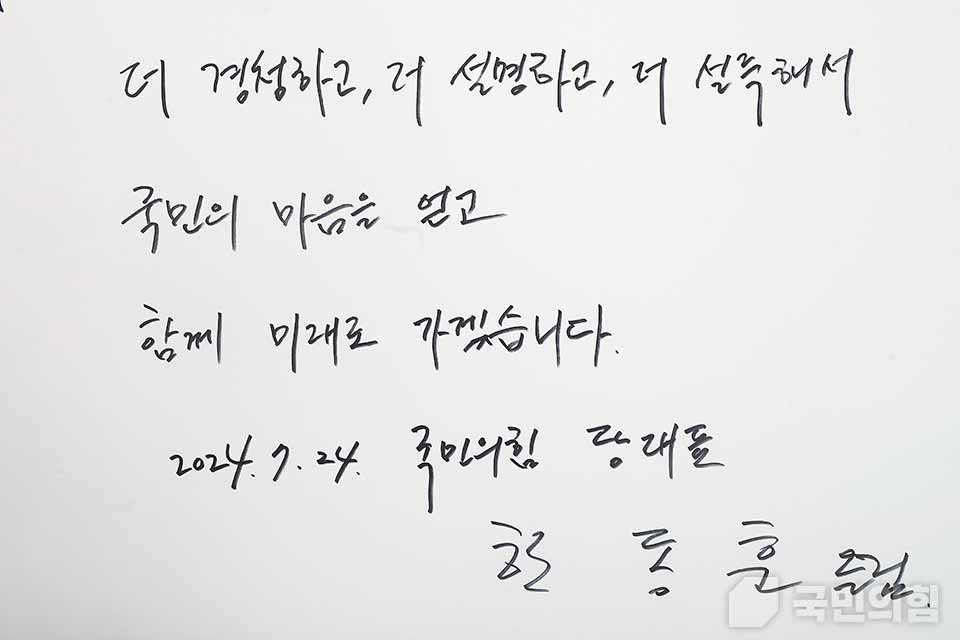 더 경청하고, 더 설명하고, 더 설득해서
국민의 마음을 얻고
함께 미래로 가겠습니다.
2024. 7. 24. 국민의힘 당대표
한 동 훈 드림.
국민의힘